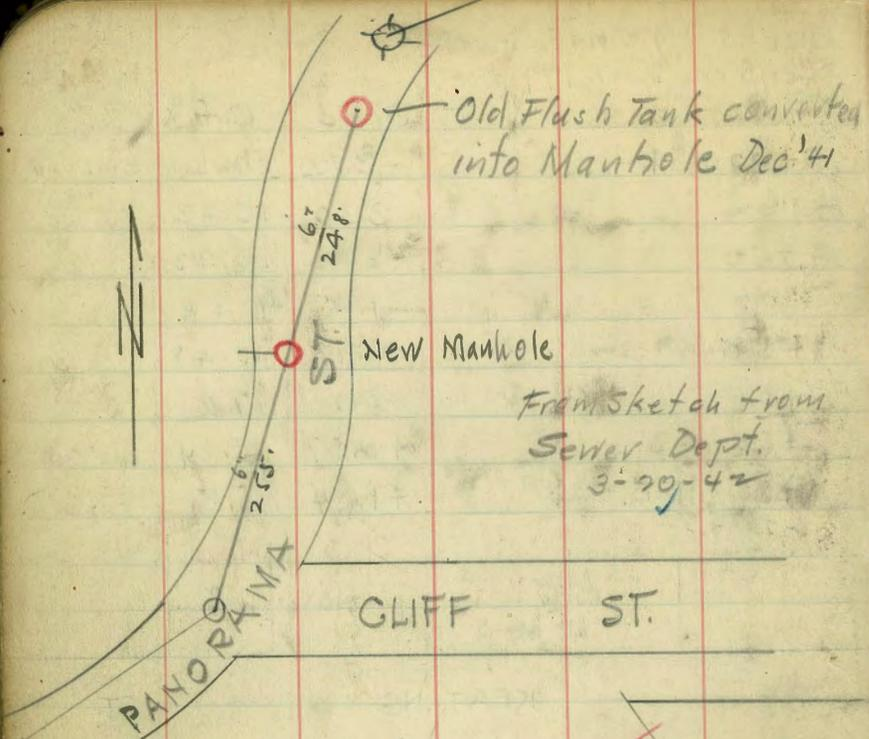 Old Flush Tank converted
into Manhole Dec '41
6"
248.
ST.
New Manhole
From Sketch from
Sewer Dept.
3-20-42
6"
255.
PANORAMA
CLIFF ST.
N